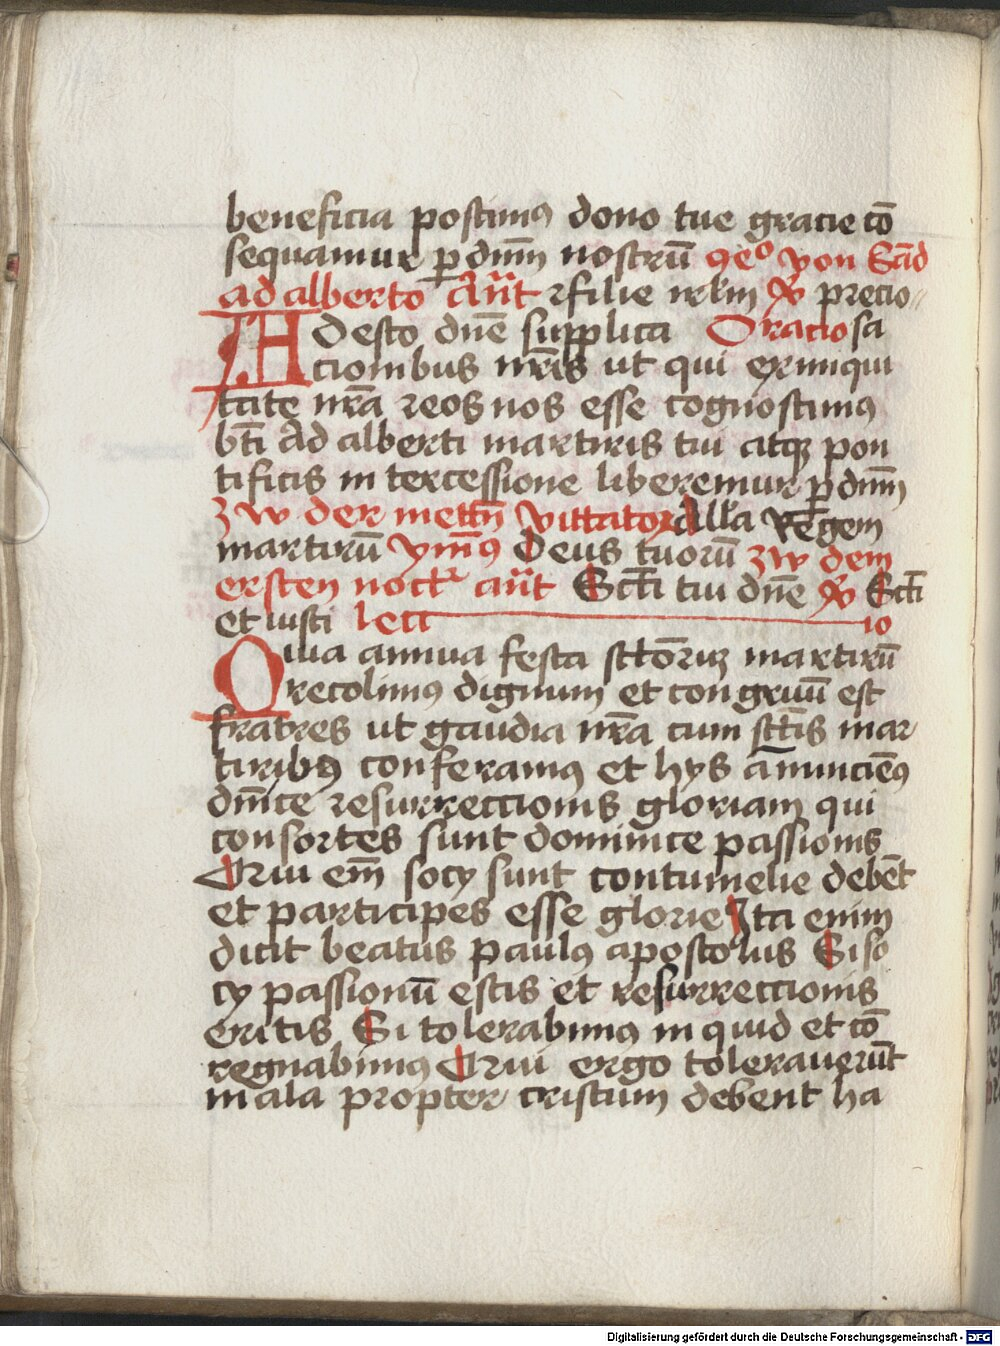 beneficia poscimus dono tue gracie cō
sequamur ꝑ dnm̄ nostrū 9eº von Sād
adalberto An̄t filie irlm ℣ precio
Adesto dn̄e supplica Oracio sa
cionibus nr̄is ut qui ex iniqui
tate nr̄a reos nos esse cognoscimus
bt̄i Adalberti martiris tui atqꝫ pon
tificis in tercessione liberemur ꝑ dnm̄
zw der mettn̄ Inuitator Alla Regem
martirū ym̄9 Deus tuorū zw dem
ersten noctr̄ an̄t Sct̄i tui dn̄e ℣ Sct̄i
et iusti lecc io
Quia annua festa sctōrꝝ martirū
recolimus dignum et congruū est
fratres ut gaudia nr̄a cum sct̄is mar
tiribus conferamus et hys ānunciem9
dnīce resurreccionis gloriam qui
consortes sunt dominice passionis
Qui em̄ socy sunt contumelie debēt
et participes esse glorie Ita enim
dicit beatus paulus apostolus Si so
cy passionū estis et resurreccionis
eritis Si tolerabimus inquid et cō
regnabimus Qui ergo tolerauerūt
mala propter cristum debent ha
Digitalisierung gefördert durch die Deutsche Forschungsgemeinschaft - DFG